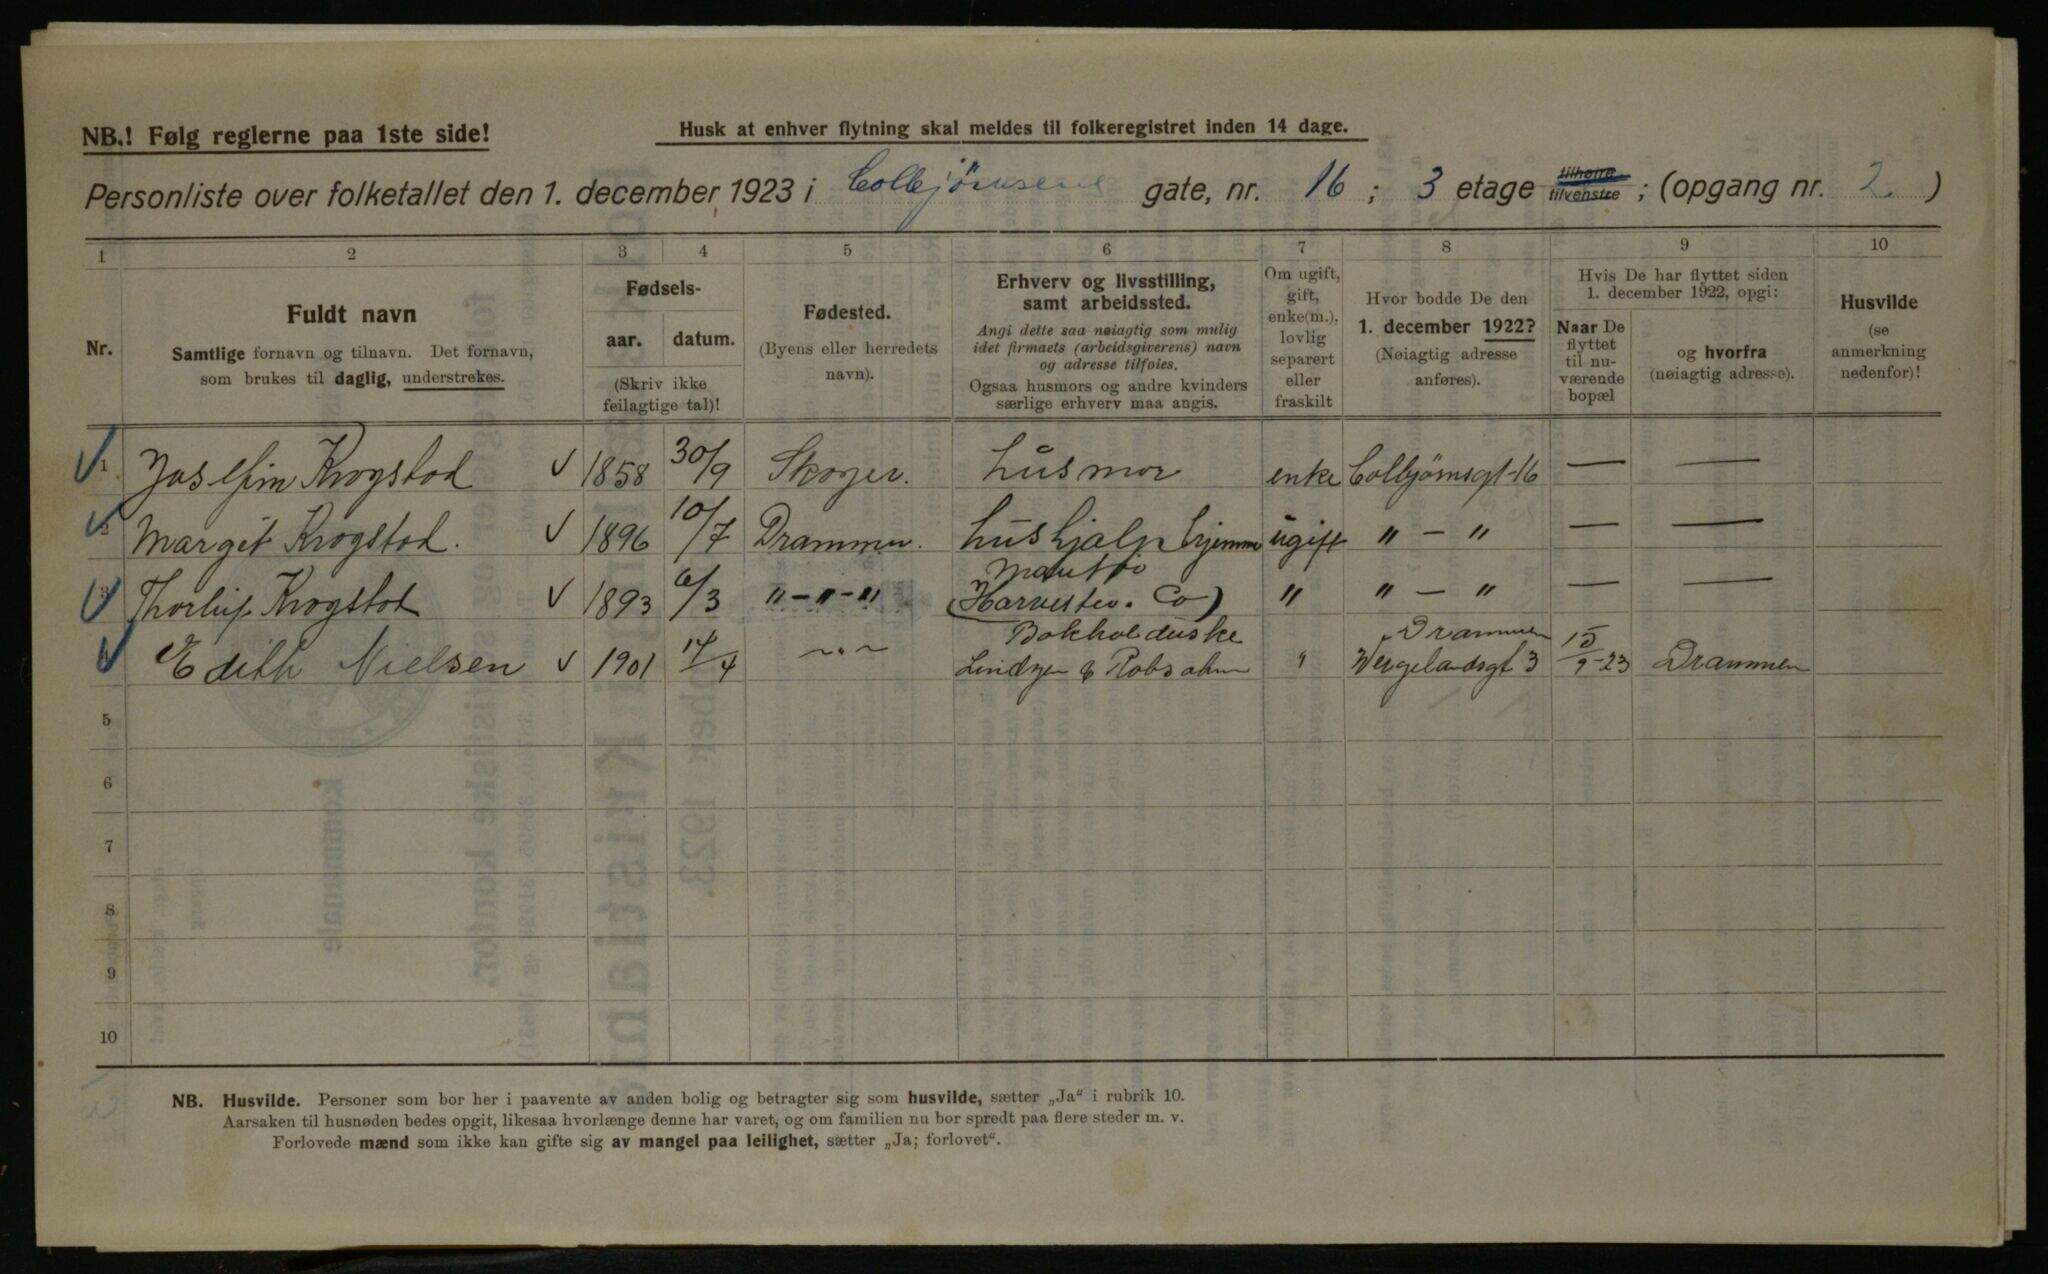 NB.! Følg reglerne paa 1ste side!
Husk at enhver flytning skal meldes til folkeregistret inden 14 dage.
Personliste over folketallet den 1. december 1923 i Colbjørnsens gate, nr. 16 ; 3 etage tilhøire tilvenstre ; (opgang nr. 2 )
1 2 3 4 5 6 7 8 9 10
Nr.
Fuldt navn
Samtlige fornavn og tilnavn. Det fornavn,
som brukes til daglig, understrekes.
Fødsels-
aar. datum.
(Skriv ikke
feilagtige tal)!
Fødested.
(Byens eller herredets
navn).
Erhverv og livsstilling,
samt arbeidssted.
Angi dette saa nøiagtig som mulig
idet firmaets (arbeidsgiverens) navn
og adresse tilføies.
Ogsaa husmors og andre kvinders
særlige erhverv maa angis.
Om ugift,
gift,
enke(m.),
lovlig
separert
eller
fraskilt
Hvor bodde De den
1. december 1922?
(Nøiagtig adresse
anføres).
Hvis De har flyttet siden
1. december 1922, opgi:
Naar De
flyttet
til nu-
værende
bopæl
og hvorfra
(nøiagtig adresse).
Husvilde
(se
anmerkning
nedenfor)!
1 Josefin Krogstad 1858 30/9 Skoger. husmor enke Colbjørnsgt-16 — —
2 Margit Krogstad. 1896 10/7 Drammen. hushjalp hjemme ugift " — " — —
3 Thorleif Krogstad 1893 6/3 " — " — " (Harvester. Co) " " — " — —
4 Edith Nielsen 1901 14/4 ~ " ~ Bokholderske
Lindgen & Robsahm " Drammen
Wergelandsgt 3 15/9-23 Drammen
5
6
7
8
9
10
NB. Husvilde. Personer som bor her i paavente av anden bolig og betragter sig som husvilde, sætter „Ja“ i rubrik 10.
Aarsaken til husnøden bedes opgit, likesaa hvorlænge denne har varet, og om familien nu bor spredt paa flere steder m. v.
Forlovede mænd som ikke kan gifte sig av mangel paa leilighet, sætter „Ja; forlovet“.